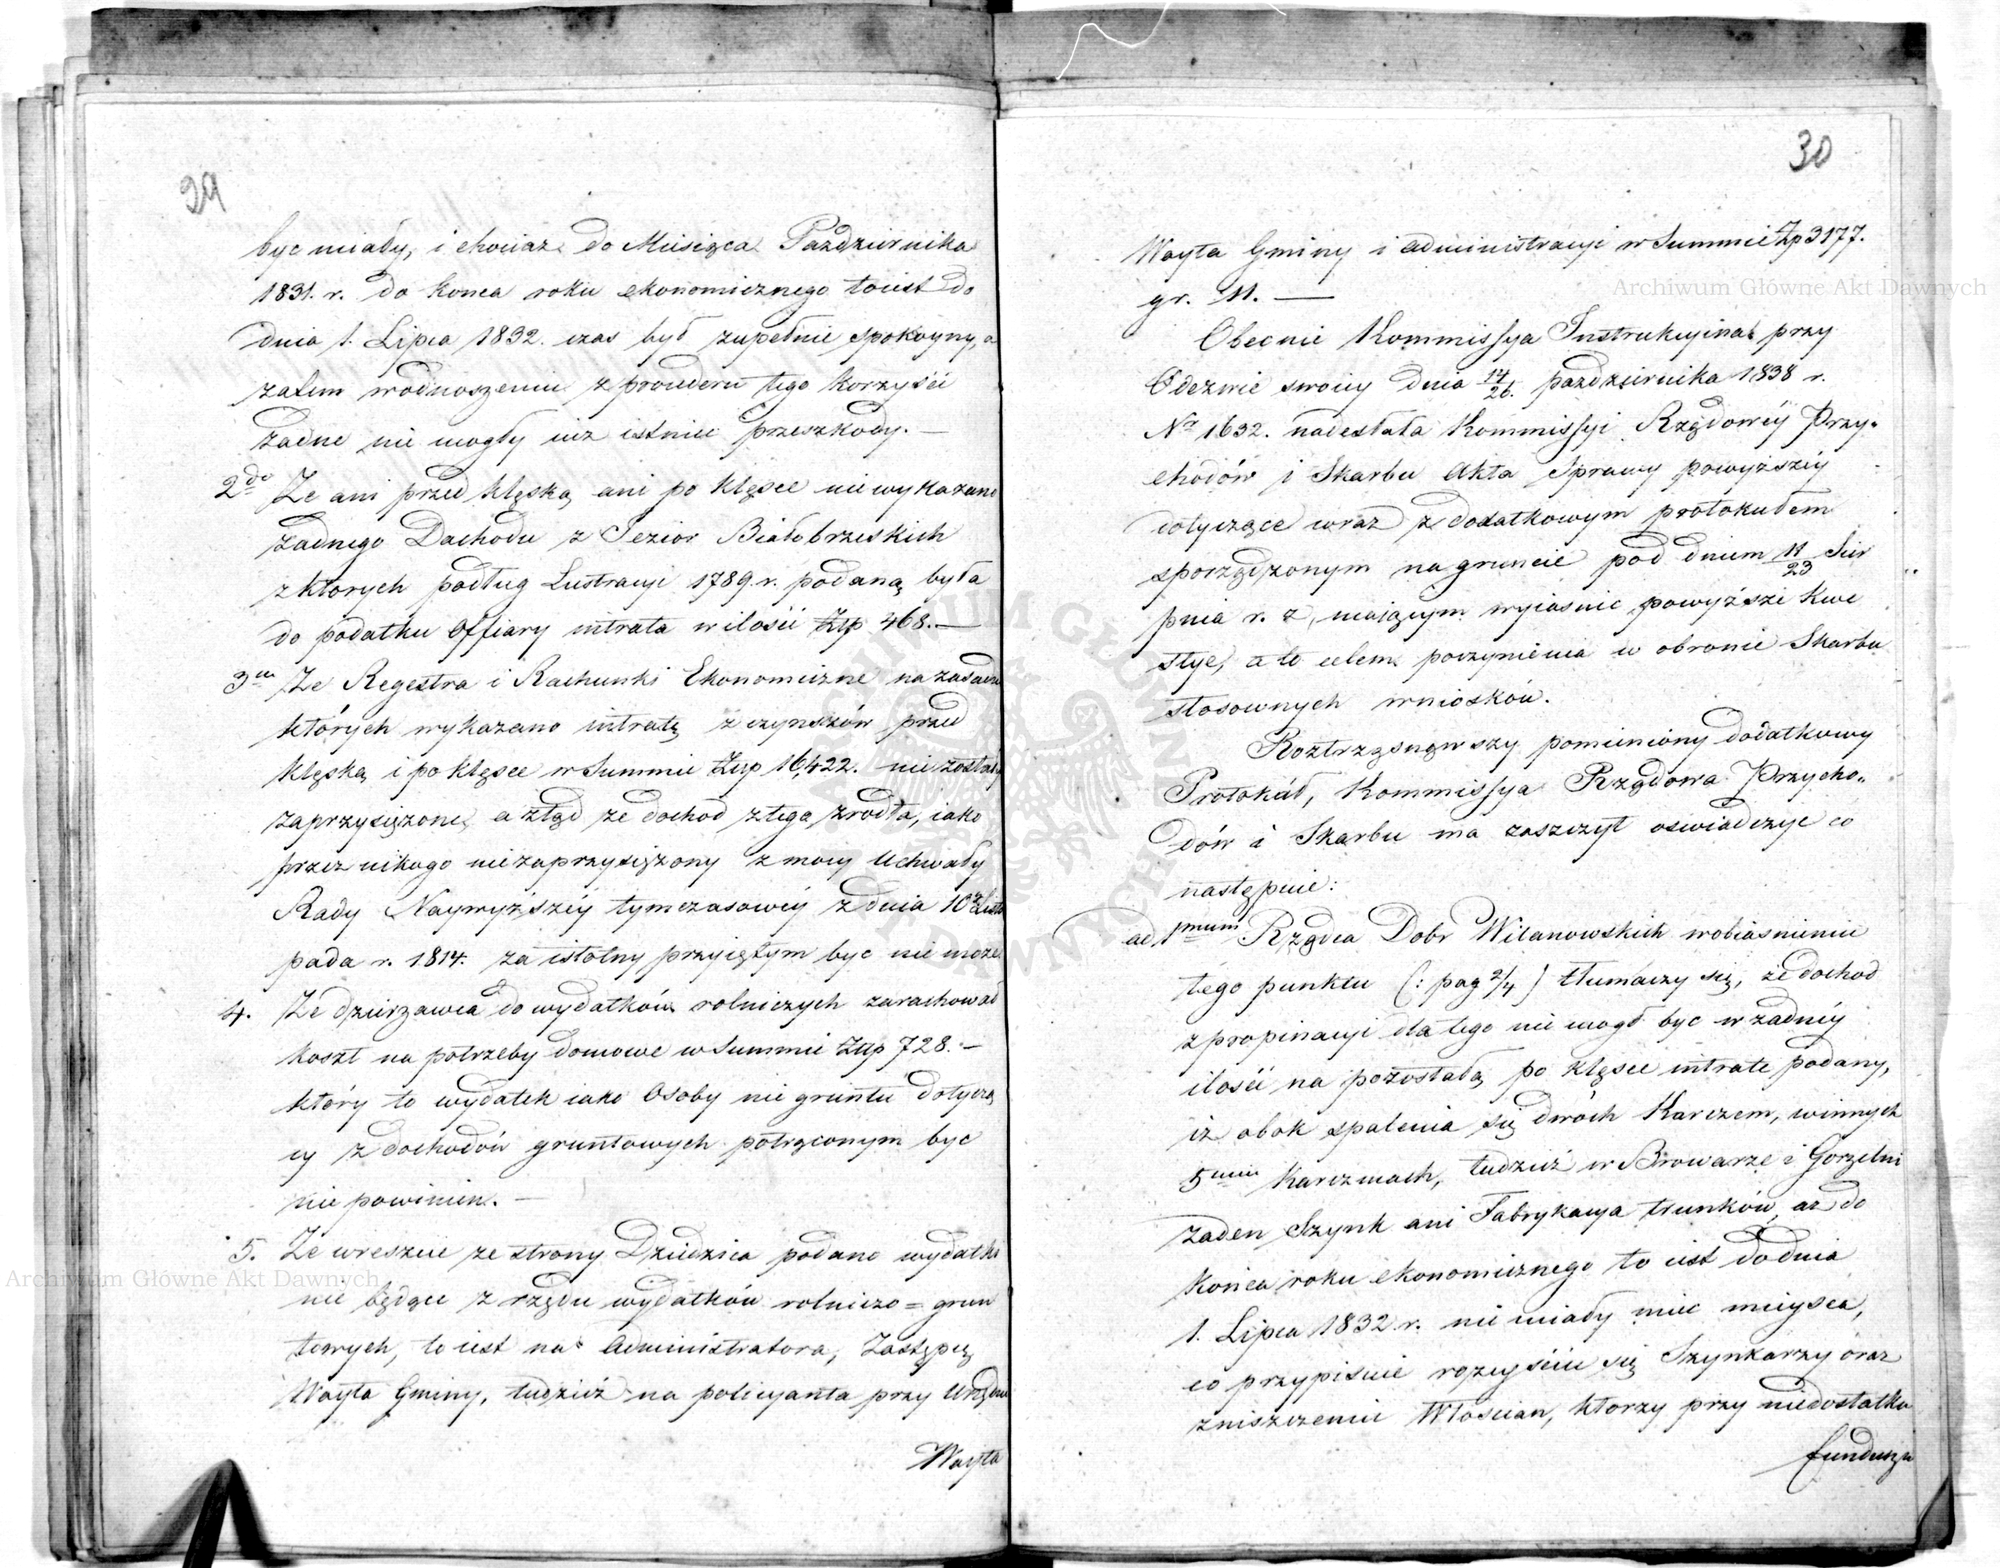 29
być miały, i chociaż do Miesiąca Października
1831. r. do końca roku ekonomicznego toiest do
dnia 1. Lipca 1832. czas był zupełnie spokoyny, a
zatem wodnoszeniu z procederu tego korzyści
żadne nie mogły iuż istnieć przeszkody. —
2do Że ani przed klęską ani po klęsce nie wykazano
żadnego Dochodu z Jezior Białobrzeskich
z których podług Lustracyi 1789. r. podaną była
do podatku Offiary intrata w ilości Złp 468. —
3tio Że Regestra i Rachunki Ekonomiczne na zasadzie
których wykazano intratę z czynszów przed
klęską i po klęsce w Summie Złp 16,422. nie zostały
zaprzysiężone, a ztąd że dochod z tego źrodła, iako
przez nikogo niezaprzysiężony z mocy Uchwały
Rady Naywyższéy tymczasowéy z dnia 10go Listo
pada r. 1814. za istotny przyiętym być nie może
4. Że dzierzawca do wydatków rolniczych zarachował
koszt na potrzeby domowe w Summie Złp 728. —
który to wydatek iako Osoby nie gruntu dotyczą
cy z dochodów gruntowych potrąconym być
nie powinien. —
5. Że wreszcie ze strony Dziedzica podano wydatki
nie będące z rzędu wydatków rolniczo = grun
towych, to iest na Administratora, Zastępcę
Woyta Gminy, tudzież na policyanta przy Urzędzie
Woyta
30
Woyta Gminy i administracyi w Summie Złp 3177.
gr. 11. —
Obecnie Kommissya Instrukcyina przy
Odezwie swoiey dnia 14/26. października 1838 r.
No 1632. nadesłała Kommissyi Rządowéy Przy-
chodów i Skarbu Akta Sprawy powyższéy
dotyczące wraz z dodatkowym protokułem
sporządzonym na gruncie pod dniem 11/23 Sier
pnia r. z, maiącym wyiasnić powyższe kwe
stye, a to celem poczynienia w obronie Skarbu
stosownych wniosków.
Roztrząsnąwszy pomieniony dodatkowy
Protokół, Kommissya Rządowa Przycho„
dów i Skarbu ma zaszczyt oświadczyć co
następuie:
ad 1mum Rządca Dobr Wilanowskich wobiaśnieniu
tego punktu (: pag 2/4 ) tłumaczy się, że dochod
z propinacyi dla tego nie mogł być w żadnéy
ilości na pozostałą po klęsce intratę podany,
iż obok spalenia się dwóch Karczem, winnych
5ciu karczmach, tudzież w Browarze i Gorzelni
żaden Szynk ani Fabrykacya trunków, aż do
końca roku ekonomicznego to iest do dnia
1. Lipca 1832 r. nie miały mieć mieysca,
co przypisuie rozeyściu się Szynkarzy oraz
zniszczeniu Włościan, którzy przy niedostatku
funduszu
Archiwum Główne Akt Dawnych
Archiwum Główne Akt Dawnych
ARCHIWUM GŁÓWNE AKT DAWNYCH